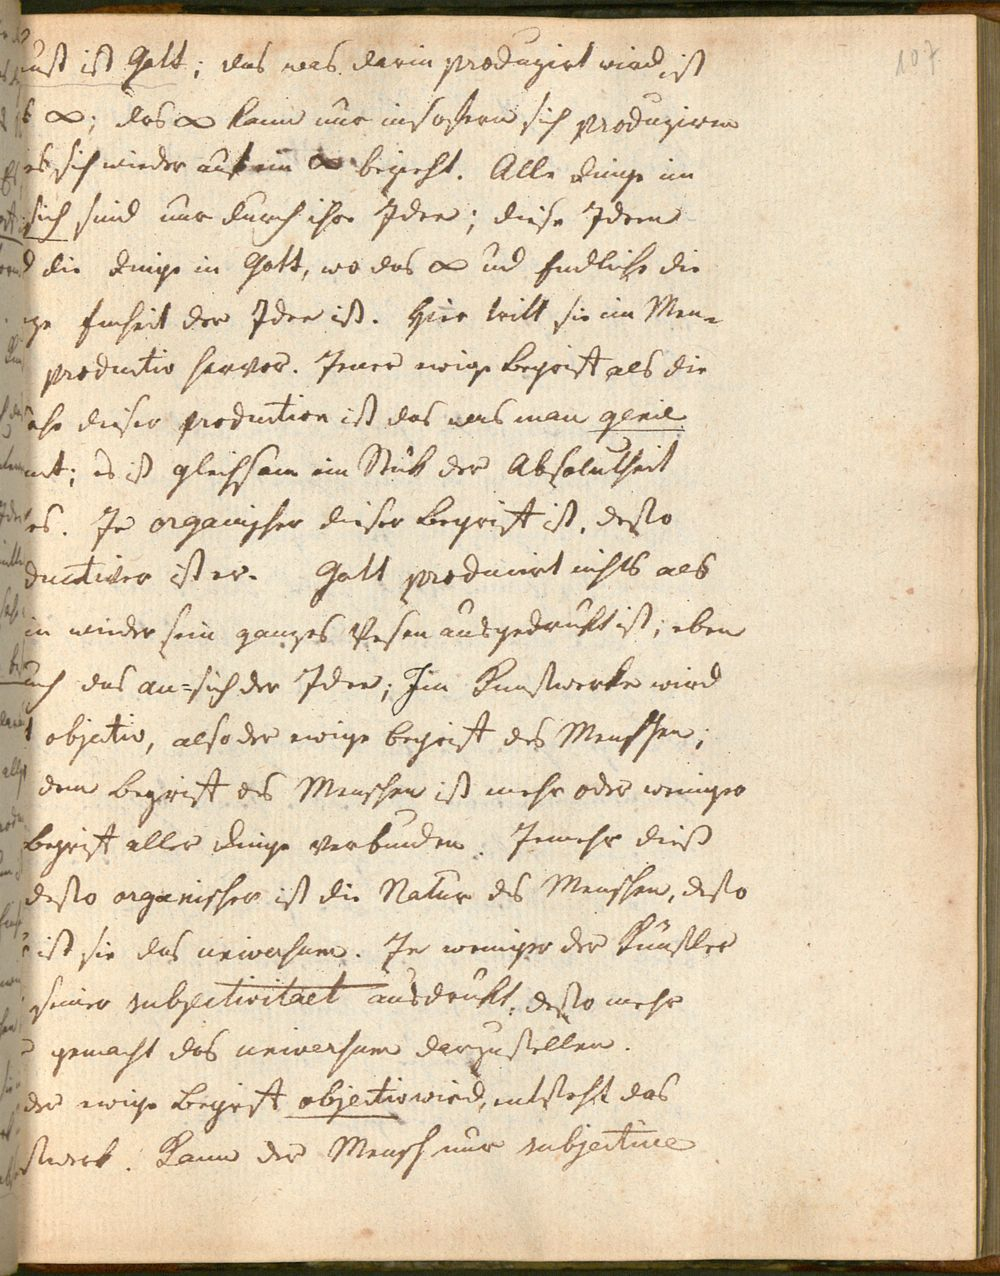 107
ust ist Gott; das was darin produzirt wird ist
s ∞; das ∞ kann nur insofern sich produziren
es sich wieder auf ein ∞ bezieht. Alle Dinge im
sich sind nur durch ihre Idee; diese Ideen
d die Dinge in Gott, wo das ∞ und Endliche die
ge Einheit der Idee ist. Hier tritt sie im Men=
productiv hervor. Jener ewige Begrift als die
ache dieser production ist das was man genie
nt; es ist gleichsam ein Stük der Absolutheit
es. Je organischer dieser Begrift ist, desto
ductiver ist er. Gott producirt nichts als
in wieder sein ganzes Wesen ausgedrukt ist; eben
uch das an=sich der Idee; Im Kunstwerke wird
t objectiv, also der ewige Begrift des Menschen;
dem Begrift des Menschen ist mehr oder weniger
Begrift aller Dinge verbunden. Jemehr dieß
desto organischer ist die Natur des Menschen, desto
ist sie das universum. Je weniger der Künstler
seiner subjectivitaet ausdrukt, desto mehr
gemacht das universum darzustellen.
der ewige Begrift objectiv wird, entsteht das
stwerk. Kann der Mensch nur subjective